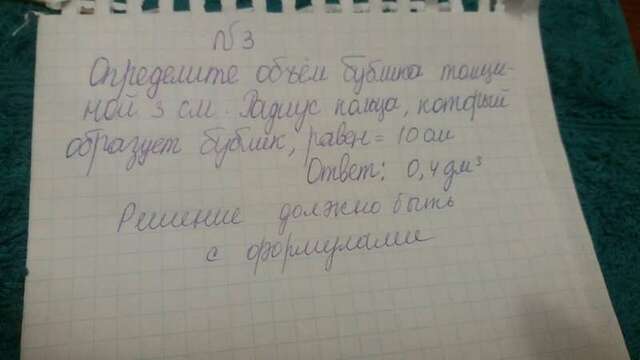 N3
Определите объём бублика толщи-
ной 3 см. Радиус кольца, который
образует бублик, равен = 10 см
Ответ: 0,4 дм³
Решение должно быть
с формулами